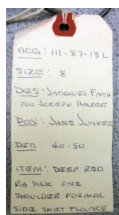 ACQ: 111-87-13L
SIZE: 8
DES: JACQUES FATH
FOR JOSEPH HALPERT
DON: JANE JUNKER
DEC: 40-50
ITEM: DEEP RED
SILK ONE
SHOULDER FORMAL
SIDE SKIRT FLOUNCE